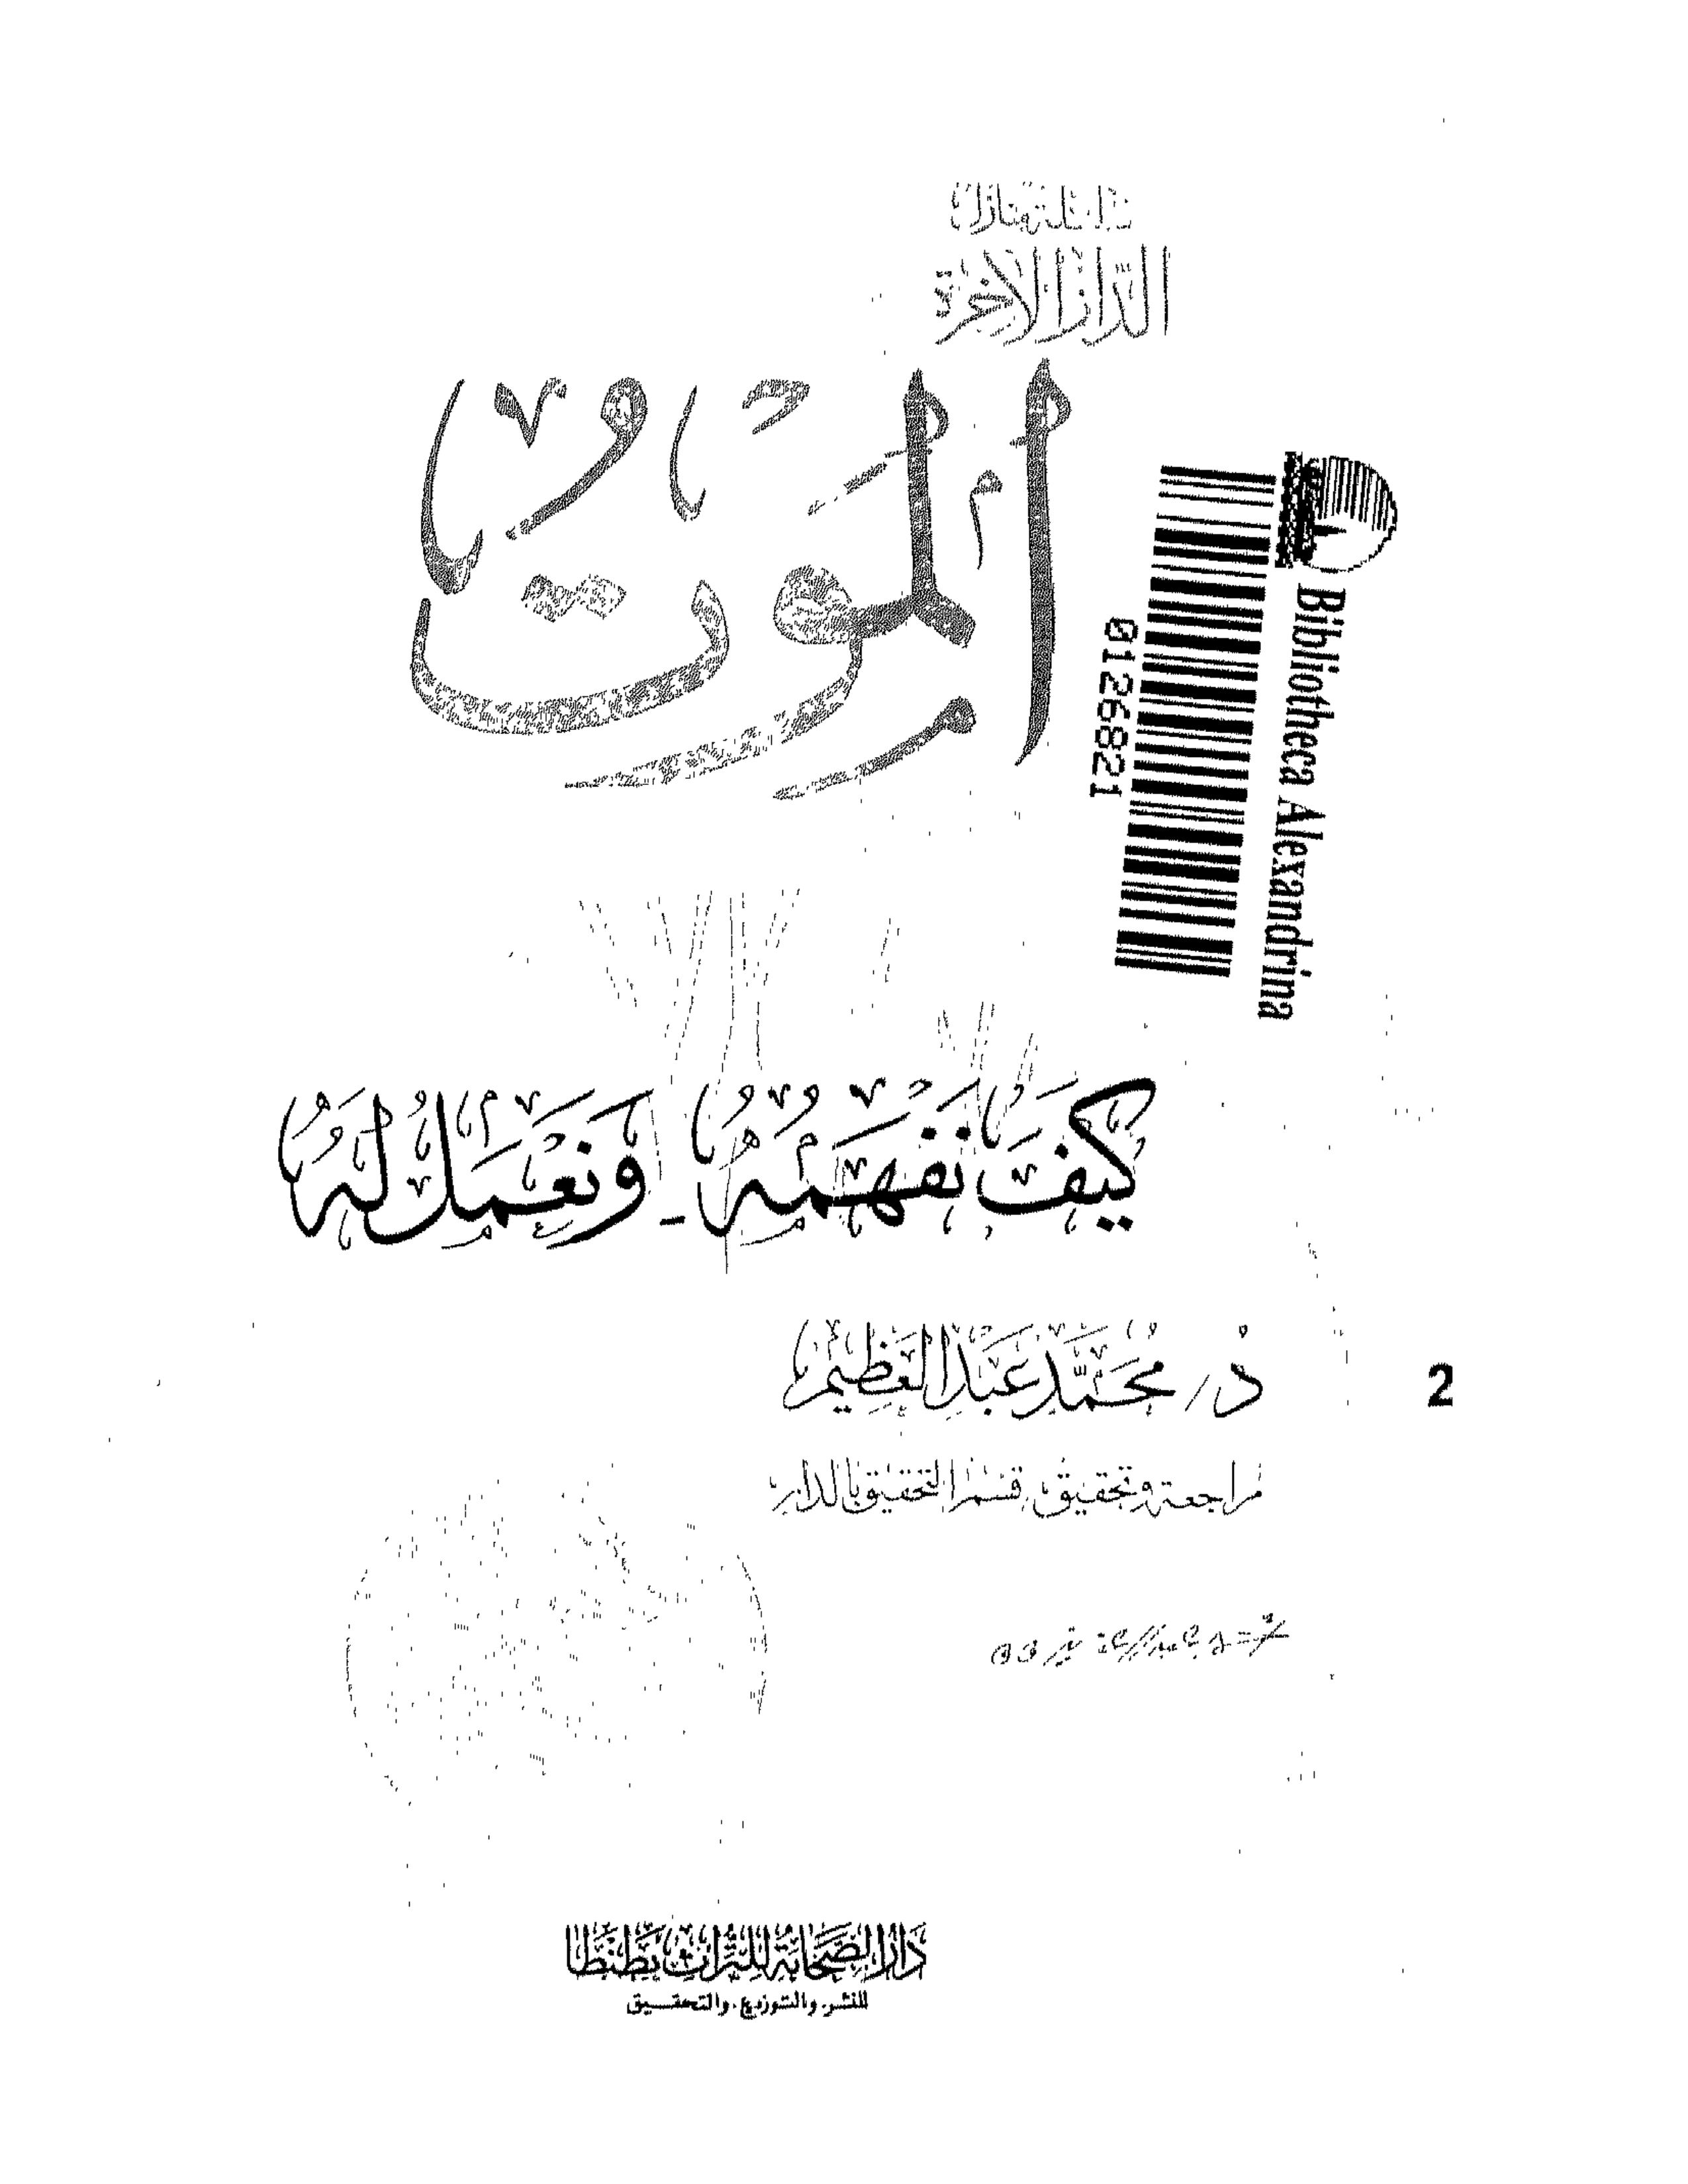 سلسلة منازل
الدار الآخرة
الموت
Bibliotheca Alexandrina
0126821
كيف نفهمه - ونعمل له
د/ محمد عبد العظيم
2
مراجعة وتحقيق قسم التحقيق بالدار
دار الصحابة للتراث بطنطا
للنشر. والتوزيع. والتحقيق